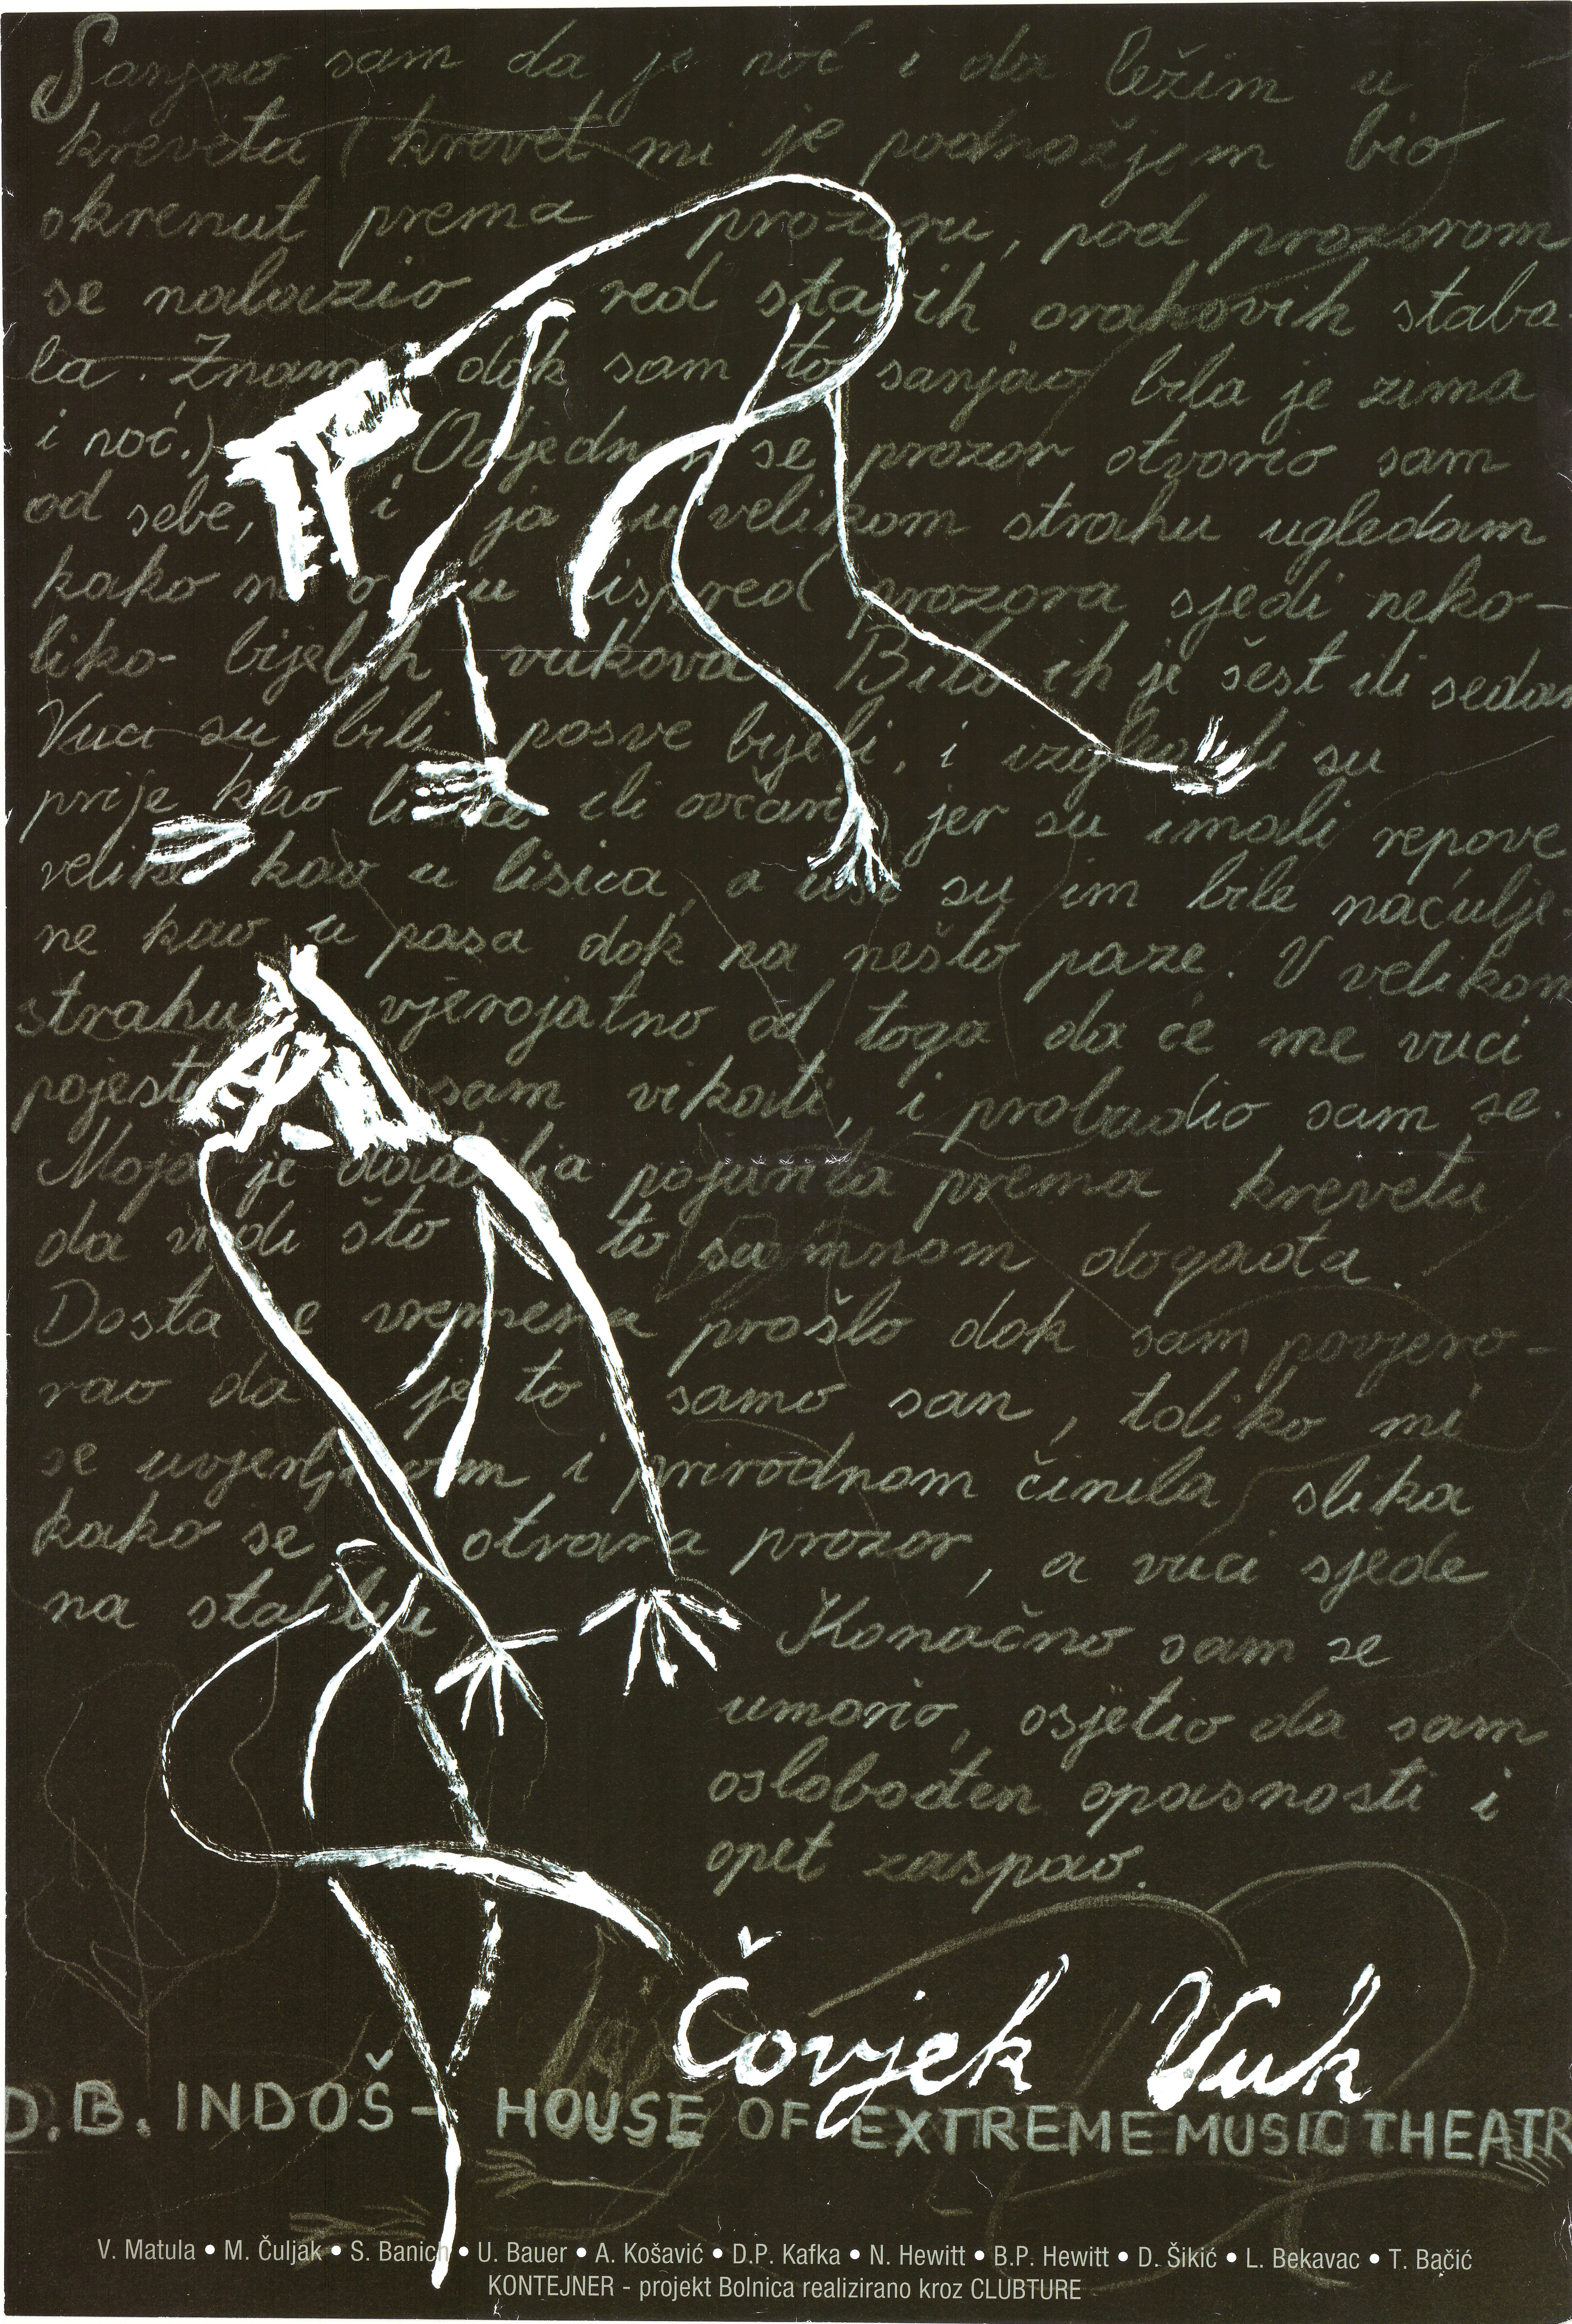 Sanjao sam da je noć i da ležim u
krevetu (krevet mi je podnožjem bio
okrenut prema prozoru, pod prozorom
se nalazio red starih orahovih staba-
la. Znam, dok sam to sanjao bila je zima
i noć.) Odjednom se prozor otvorio sam
od sebe, i ja u velikom strahu ugledam
kako na ispred prozora sjedi neko-
liko bijelih vukova. Bilo ih je šest ili sedam
Vuci su bili posve bijeli, i izgledali su
prije kao lisice ili ovčari, jer su imali repove
velike kao u lisica, a uši su im bile naćulje-
ne kao u pasa dok na nešto paze. U velikom
strahu vjerojatno od toga da će me vuci
pojesti sam vikati, i probudio sam se.
Moja je dadilja pojurila prema krevetu
da vidi što to sa mnom događa.
Dosta je vremena prošlo dok sam povjero-
vao da je to samo san, toliko mi
se uvjerljivom i prirodnom činila slika
kako se otvara prozor, a vuci sjede
na stablu. Konačno sam se
umorio, osjetio da sam
oslobođen opasnosti i
opet zaspao.
Čovjek Vuk
D.B. INDOŠ - HOUSE OF EXTREME MUSIC THEATR
V. Matula • M. Čuljak • S. Banich • U. Bauer • A. Košavić • D.P. Kafka • N. Hewitt • B.P. Hewitt • D. Šikić • L. Bekavac • T. Bačić
KONTEJNER - projekt Bolnica realizirano kroz CLUBTURE